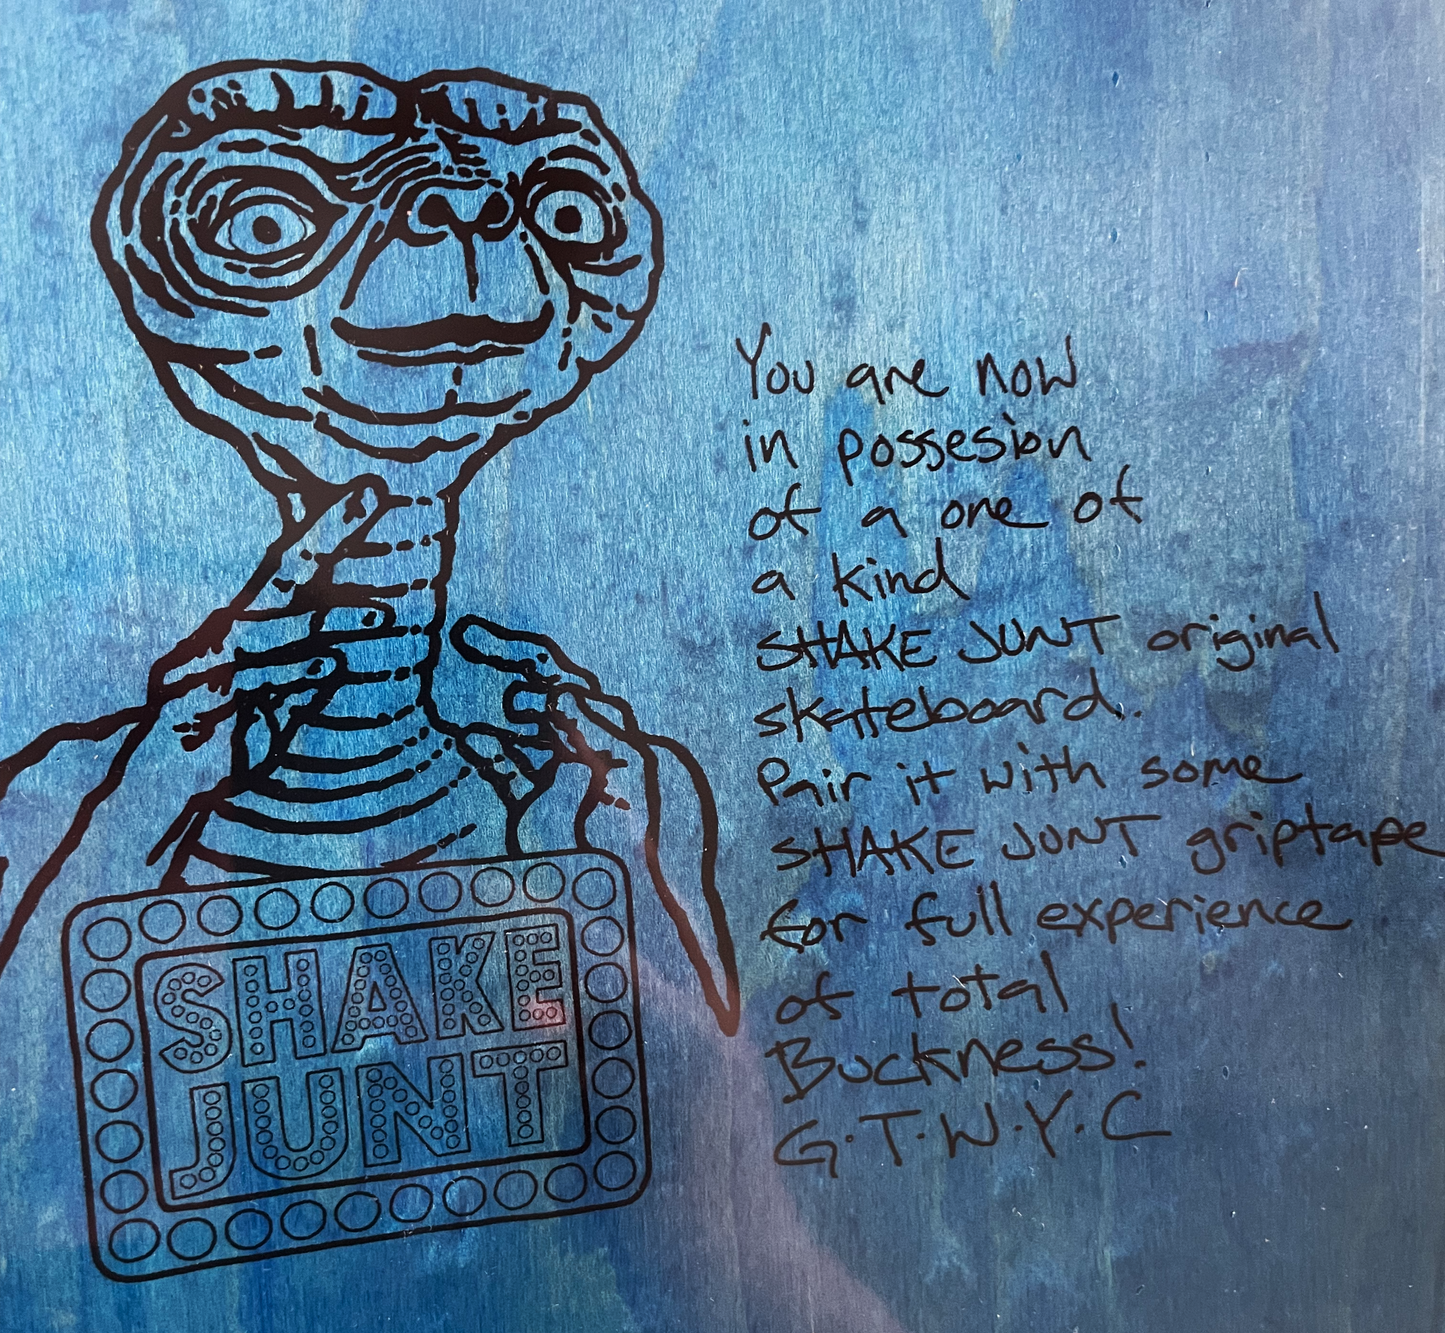 You are now
in possesion
of a one of
a kind
SHAKE JUNT original
skateboard.
Pair it with some
SHAKE JUNT griptape
for full experience
of total
Buckness!
G.T.W.Y.C
SHAKE
JUNT